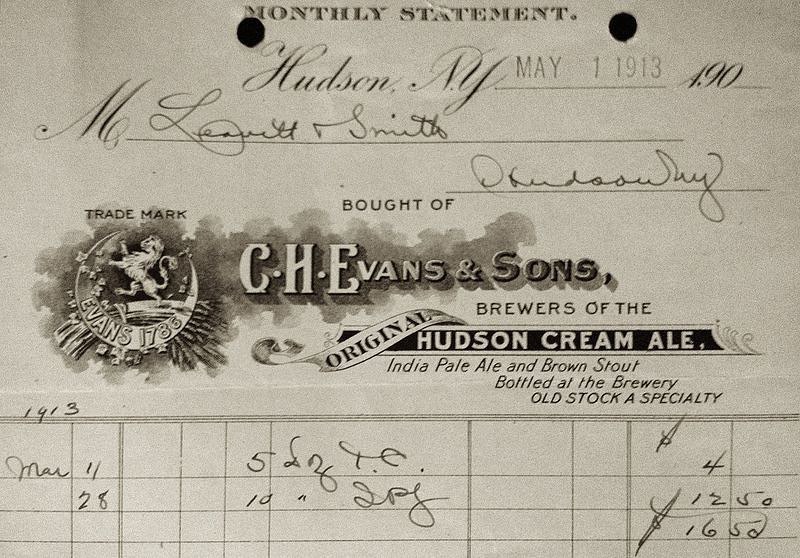 MONTHLY STATEMENT.
Hudson, N.Y. MAY 1 1913 190
M Leavitt & Smith
Hudson NY
BOUGHT OF
TRADE MARK
EVANS 1786
C.H.EVANS & SONS,
BREWERS OF THE
ORIGINAL HUDSON CREAM ALE,
India Pale Ale and Brown Stout
Bottled at the Brewery
OLD STOCK A SPECIALTY
1913
Mar 11 5 Dz T.C. $ 4
28 10 " 12 50
$ 16 50